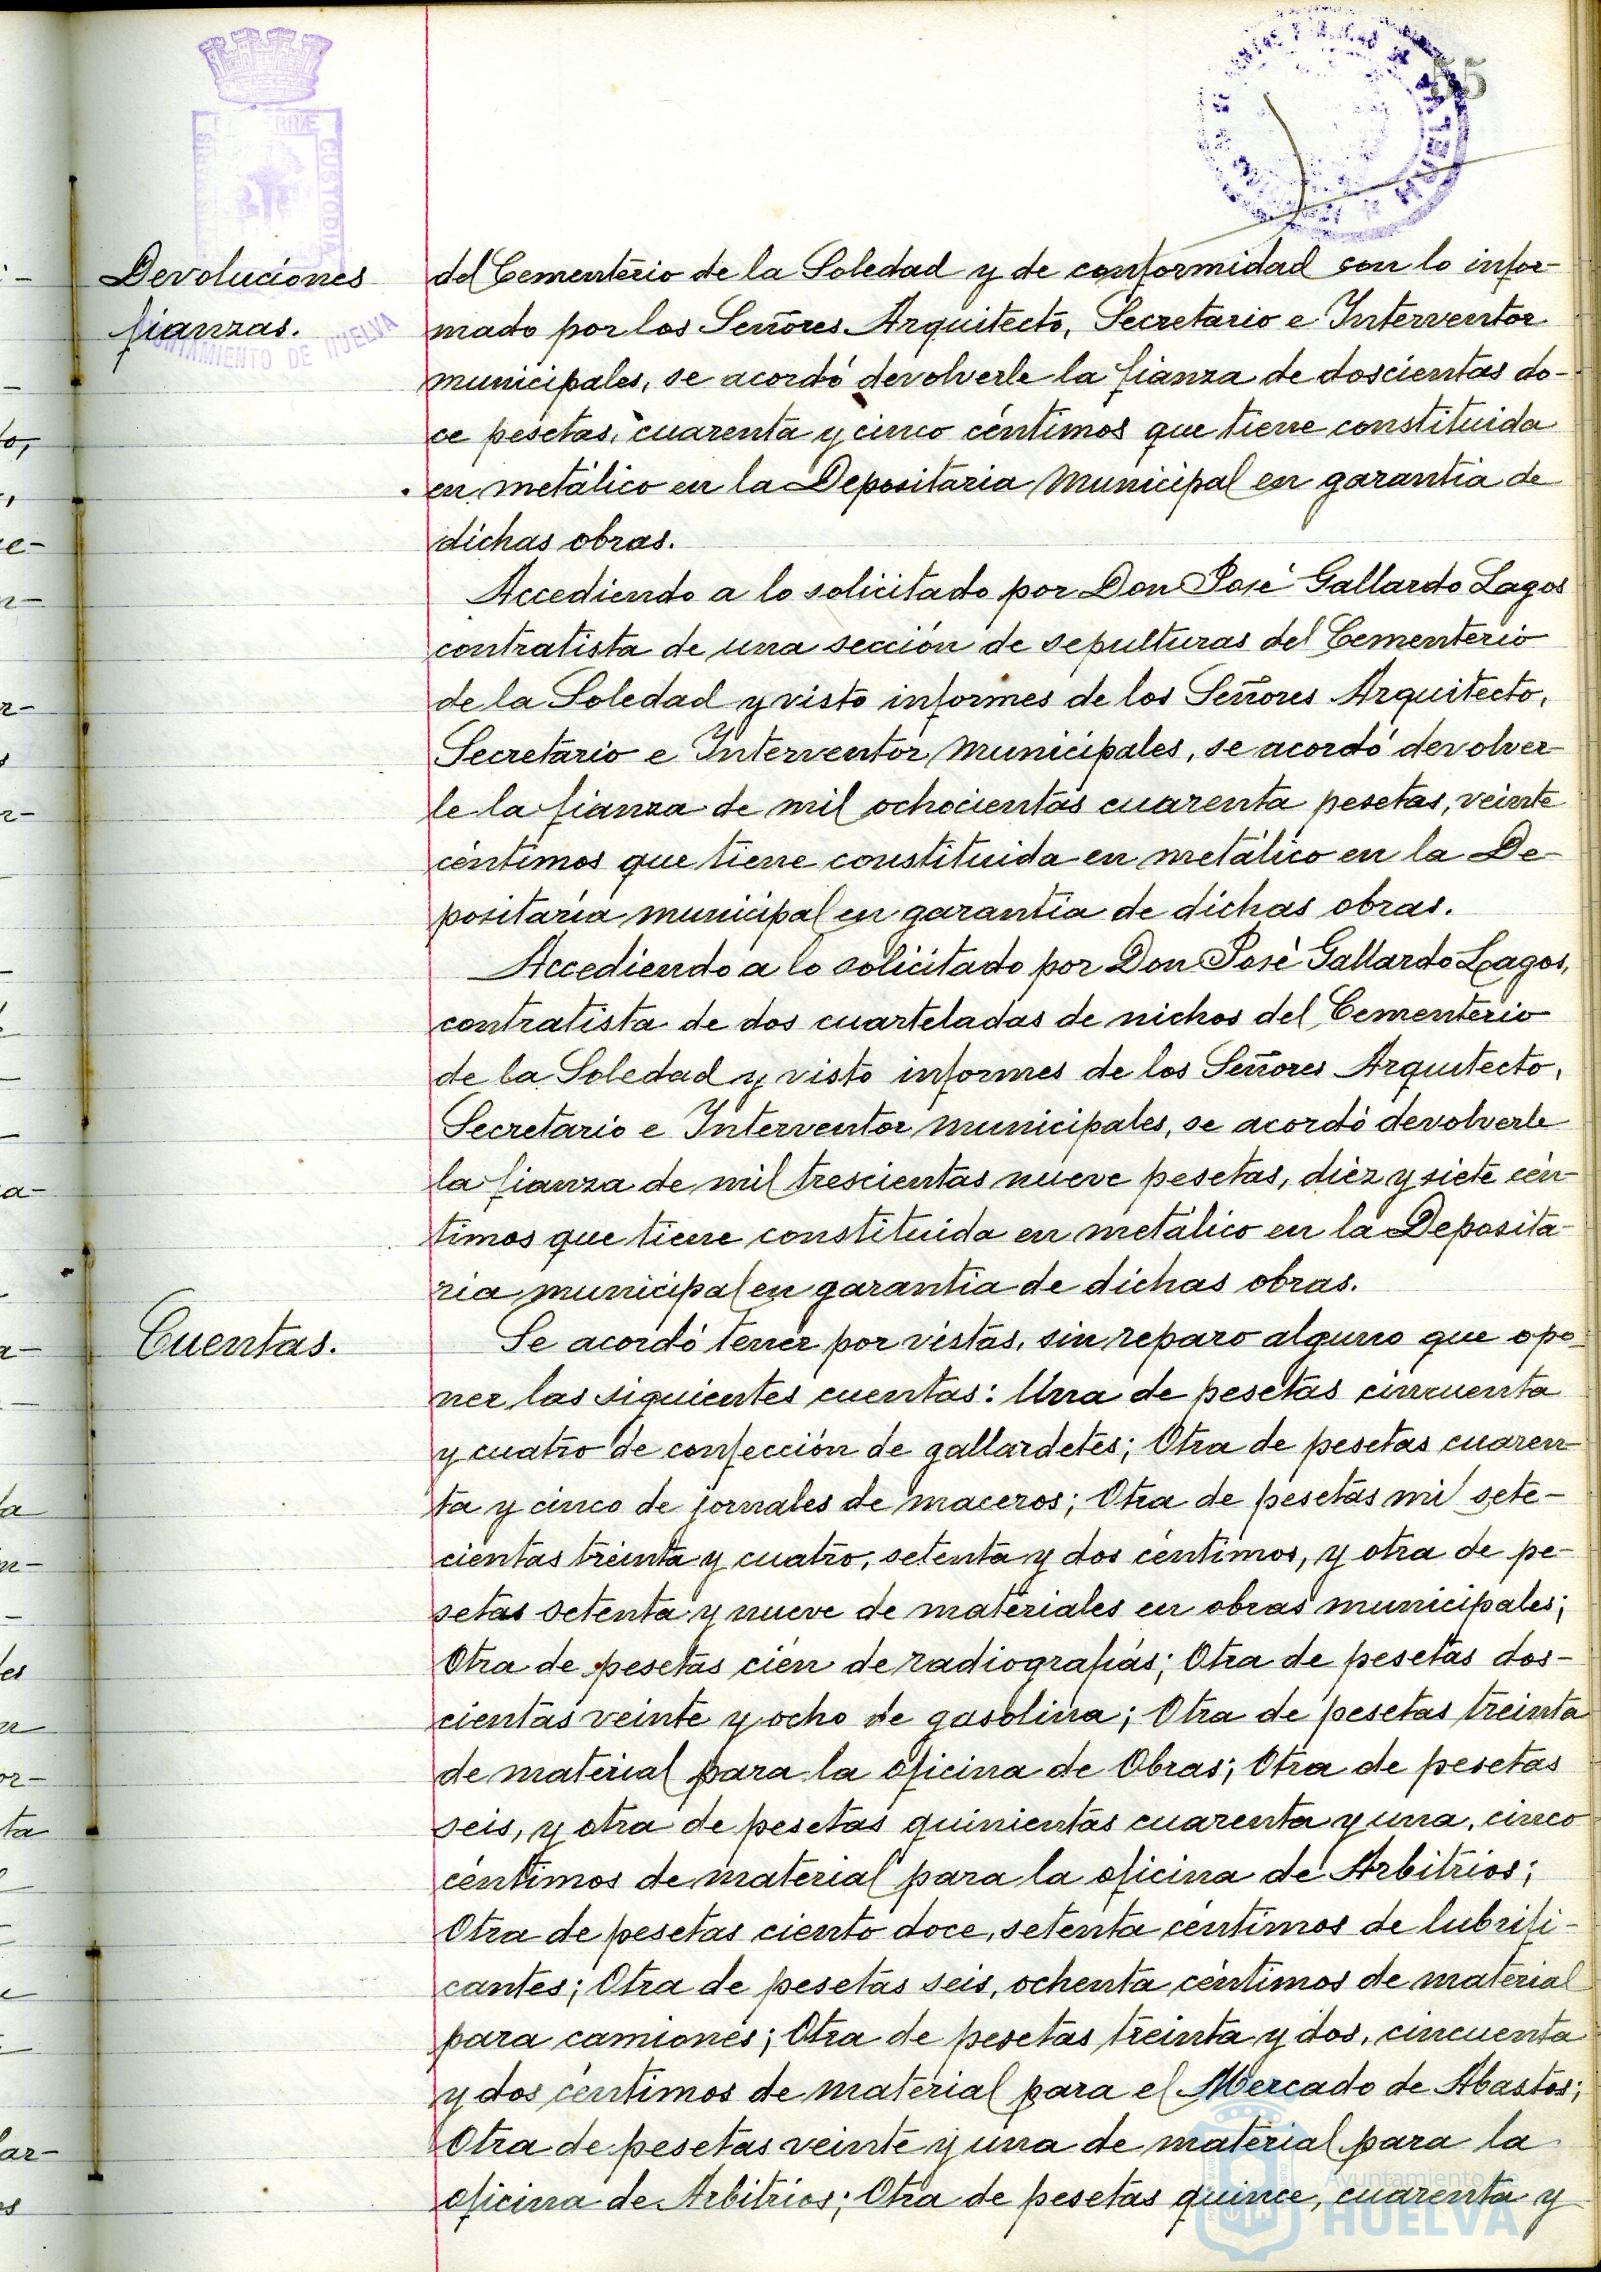 55
Devoluciones
fianzas.
del Cementerio de la Soledad y de conformidad con lo infor-
mado por los Señores Arquitecto, Secretario e Interventor
municipales, se acordó devolverle la fianza de doscientas do-
ce pesetas, cuarenta y cinco céntimos que tiene constituida
en metálico en la Depositaria Municipal en garantia de
dichas obras.
Accediendo a lo solicitado por Don José Gallardo Lagos
contratista de una sección de sepulturas del Cementerio
de la Soledad y visto informes de los Señores Arquitecto,
Secretario e Interventor Municipales, se acordó devolver-
le la fianza de mil ochocientas cuarenta pesetas, veinte
céntimos que tiene constituida en metálico en la De-
positaria municipal en garantia de dichas obras.
Accediendo a lo solicitado por Don José Gallardo Lagos,
contratista de dos cuarteladas de nichos del Cementerio
de la Soledad y visto informes de los Señores Arquitecto,
Secretario e Interventor municipales, se acordó devolverle
la fianza de mil trescientas nueve pesetas, diez y siete cén-
timos que tiene constituida en metálico en la Deposita-
ria municipal en garantia de dichas obras.
Cuentas.
Se acordó tener por vistas, sin reparo alguno que opo-
ner las siguientes cuentas: Una de pesetas cincuenta
y cuatro de confección de gallardetes; Otra de pesetas cuaren-
ta y cinco de jornales de maceros; Otra de pesetas mil sete-
cientas treinta y cuatro, setenta y dos céntimos, y otra de pe-
setas setenta y nueve de materiales en obras municipales;
Otra de pesetas cien de radiografías; Otra de pesetas dos-
cientas veinte y ocho de gasolina; Otra de pesetas treinta
de material para la oficina de Obras; Otra de pesetas
seis, y otra de pesetas quinientas cuarenta y una, cinco
céntimos de material para la oficina de Arbitrios;
Otra de pesetas ciento doce, setenta céntimos de lubrifi-
cantes; Otra de pesetas seis, ochenta céntimos de material
para camiones; Otra de pesetas treinta y dos, cincuenta
y dos céntimos de material para el Mercado de Abastos;
Otra de pesetas veinte y una de material para la
oficina de Arbitrios; Otra de pesetas quince, cuarenta y
Ayuntamiento de
HUELVA